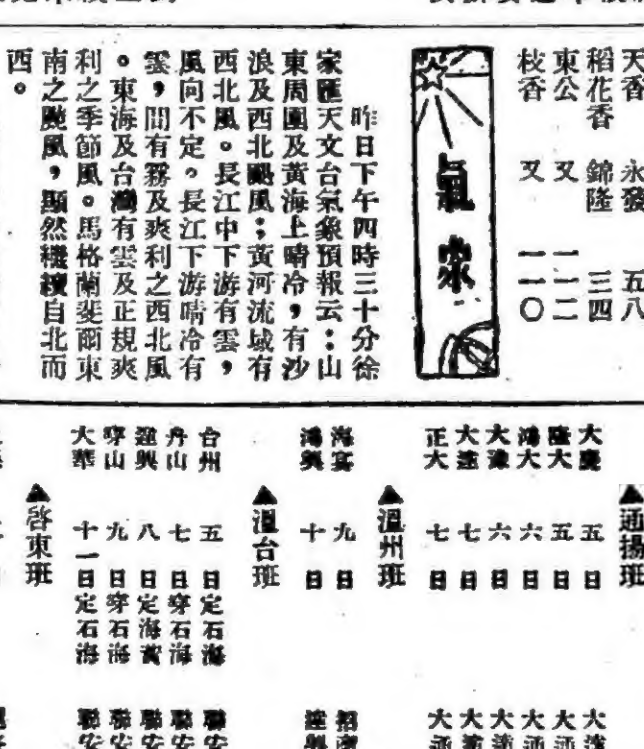 天香　永發　五八
稻花香　錦隆　三四
東公　又　一一二
枝香　又　一一〇
氣象
昨日下午四時三十分徐
家匯天文台氣象預報云：山
東周圍及黃海上晴冷，有沙
浪及西北颶風；黃河流域有
西北風。長江中下游有雲，
風向不定。長江下游晴冷有
雲，間有霧及爽利之西北風
。東海及台灣有雲及正規爽
利之季節風。馬格蘭斐爾東
南之颶風，顯然繼續自北而
西。
▲通揚班
大慶　五　日
隆大　五　日
鴻大　六　日
大豫　六　日
大達　七　日
正大　七　日
▲溫州班
海宴　九　日
鴻興　十　日
▲溫台班
台州　五　日定石海　聯安
丹山　七　日穿石海　聯安
運興　八　日定海黃　聯安
穿山　九　日穿石海　聯安
大華　十一日定石海　聯安
▲啓東班